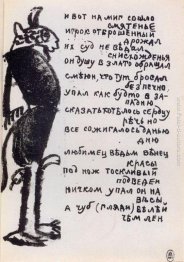 и вот на миг сошло
смятенье
игрок отерошенный
дрожал
их суд не ведал
снисхожденья
он душу в злато обращал
смеюн, что тут бросал
беспечно
упал как будто в за-
падню
сказать хотелось сердцу
вечно
все сожигалось данью
дню
любимец ведьм венец
красы
под нож тоскливый
подведен
ничком упал он на
весы
а чуб белей
чем лен